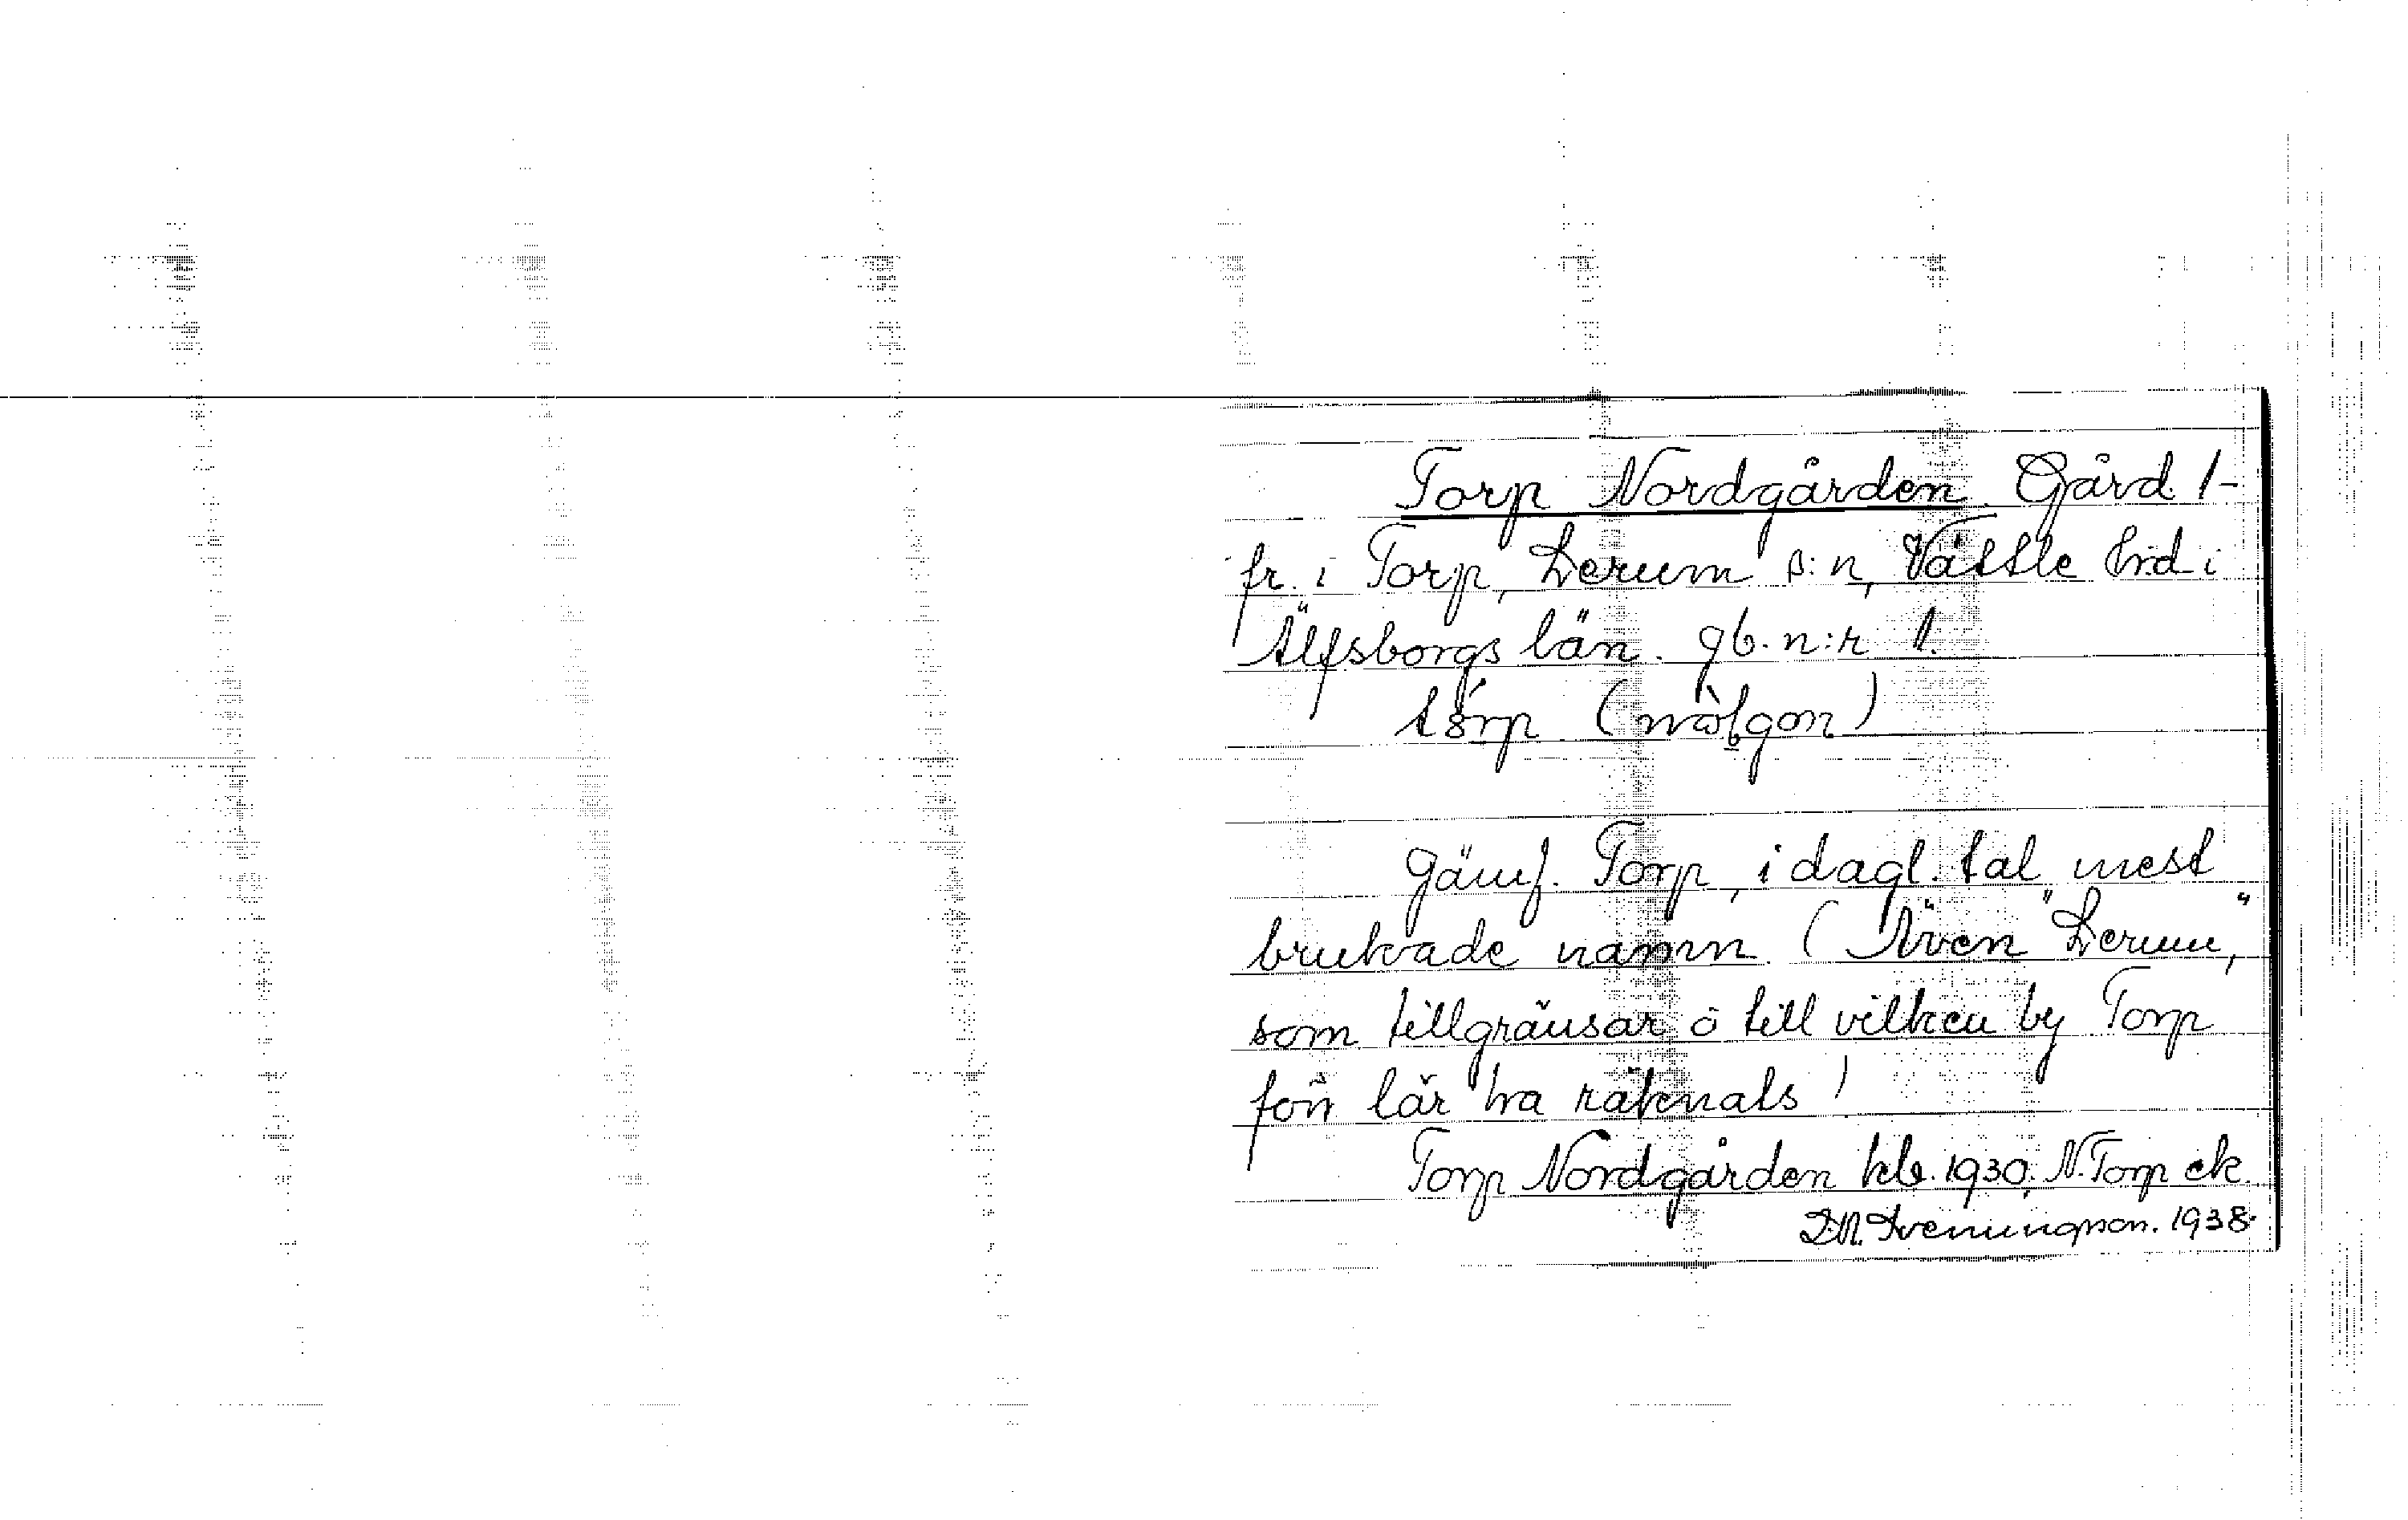 Torp Nordgården. Gård 1-
fr. i Torp, Lerum s:n, Vättle hrd i
Älfsborgs län. gb. n:r 1.
Gämf. Torp, i dagl. tal mest
brukade namn. (Även "Lerum",
som tillgränsar o till vilken by Torp
förr lär ha räknats)
Torp Nordgården kb. 1930, N. Torp ek.
1938.